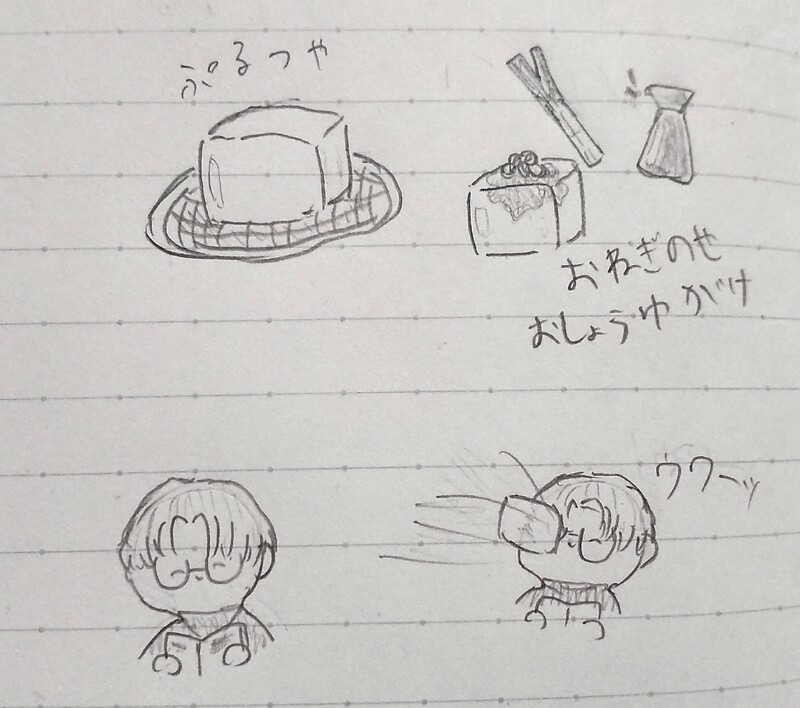 ぷるつや
おねぎのせ
おしょうゆがけ
ウワーッ